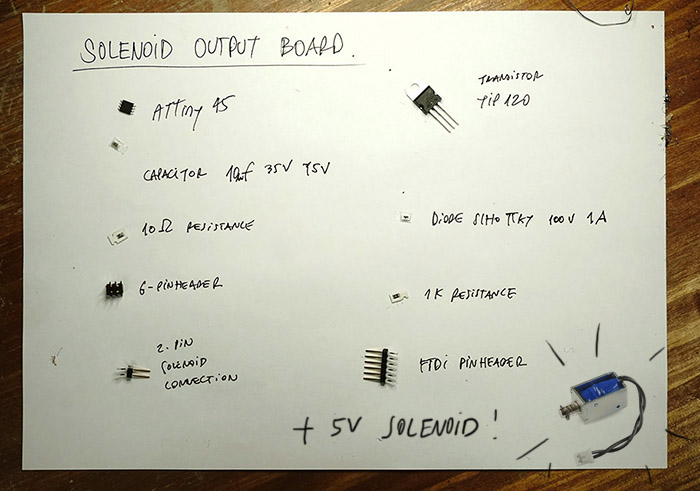 SOLENOID OUTPUT BOARD.
ATTiny 45
CAPACITOR 10uf 35V 75V
10Ω RESISTANCE
6-PINHEADER
2. PIN
SOLENOID
CONNECTION
TRANSISTOR
TIP 120
DIODE SCHOTTKY 100V 1A
1K RESISTANCE
FTDi PINHEADER
+ 5V SOLENOID!